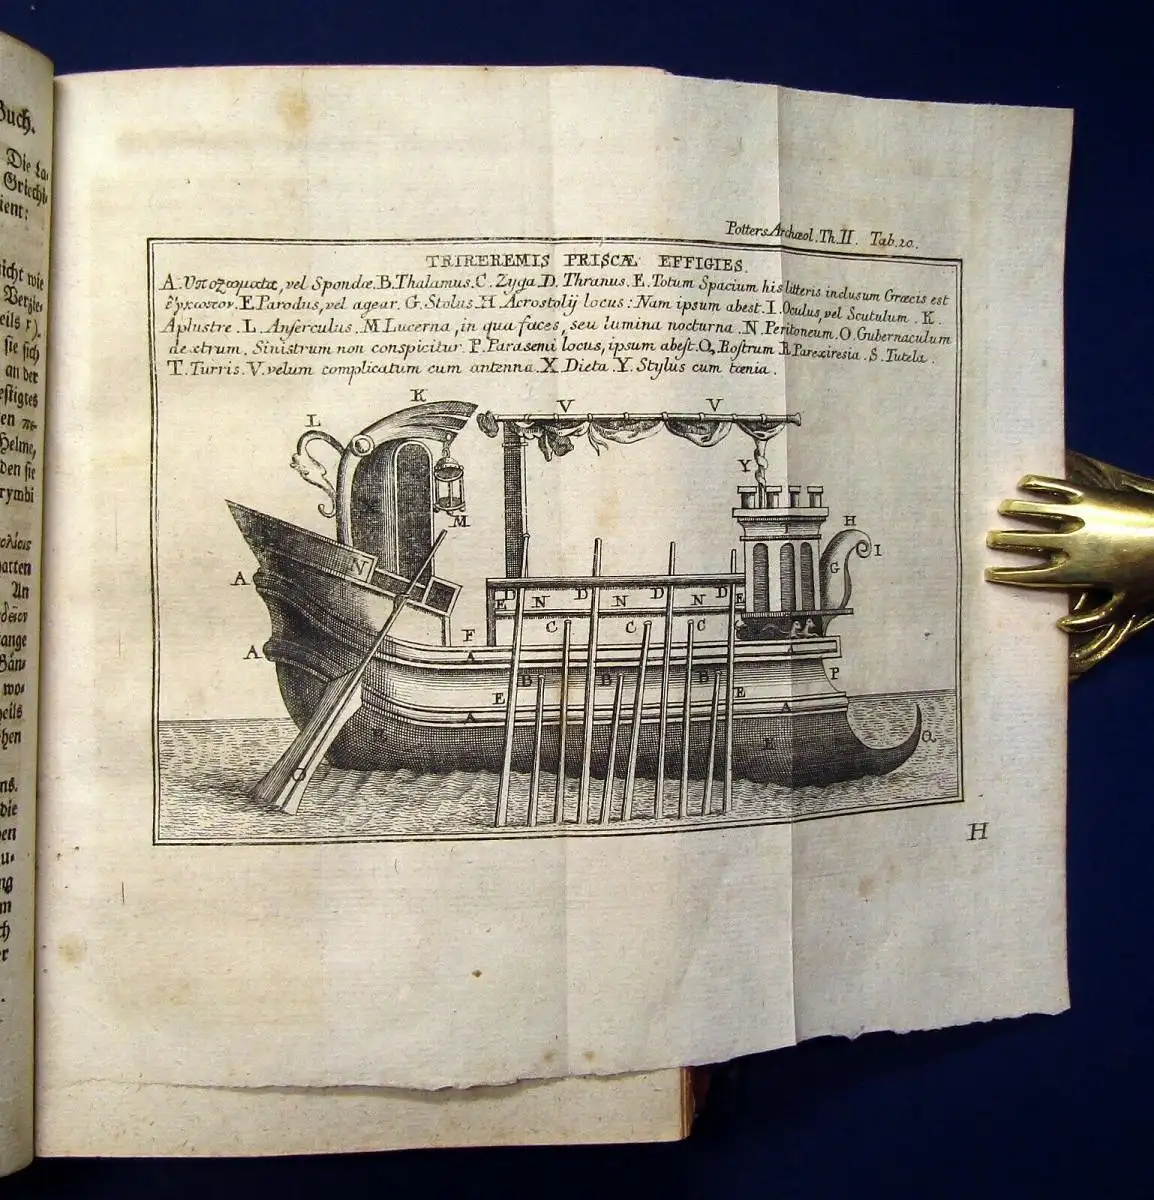 Buch.
Die La-
Griech-
ient:
sicht wie
eils r).
sie sich
an der
estigtes
Helme,
den sie
rymbi
hatten
An
lange
wo-
eils
ns.
die
Potters Archæol. Th. II. Tab. 20.
TRIREREMIS PRISCÆ EFFIGIES.
A. Υποζωματα, vel Spondæ. B. Thalamus. C. Zyga. D. Thranus. E. Totum Spacium his litteris inclusum Græcis est
ἔγκωπον. E Parodus, vel agear. G. Stolus. H. Acrostolij locus: Nam ipsum abest. I. Oculus, vel Scutulum. K.
Aplustre. L. Anserculus. M Lucerna, in qua faces, seu lumina nocturna. N. Peritoneum. O. Gubernaculum
dextrum. Sinistrum non conspicitur. P. Parasemi locus, ipsum abest. Q. Rostrum R Parexiresia. S. Tutela.
T. Turris. V. velum complicatum cum antenna. X. Dieta. Y. Stylus cum tænia.
K
V V
L
Y
X
M
H
I
T
G
N
A
D D D D
E N N N E
C C C
F
A
A
A
P
B B B
E E
A A
Q
E
O
H